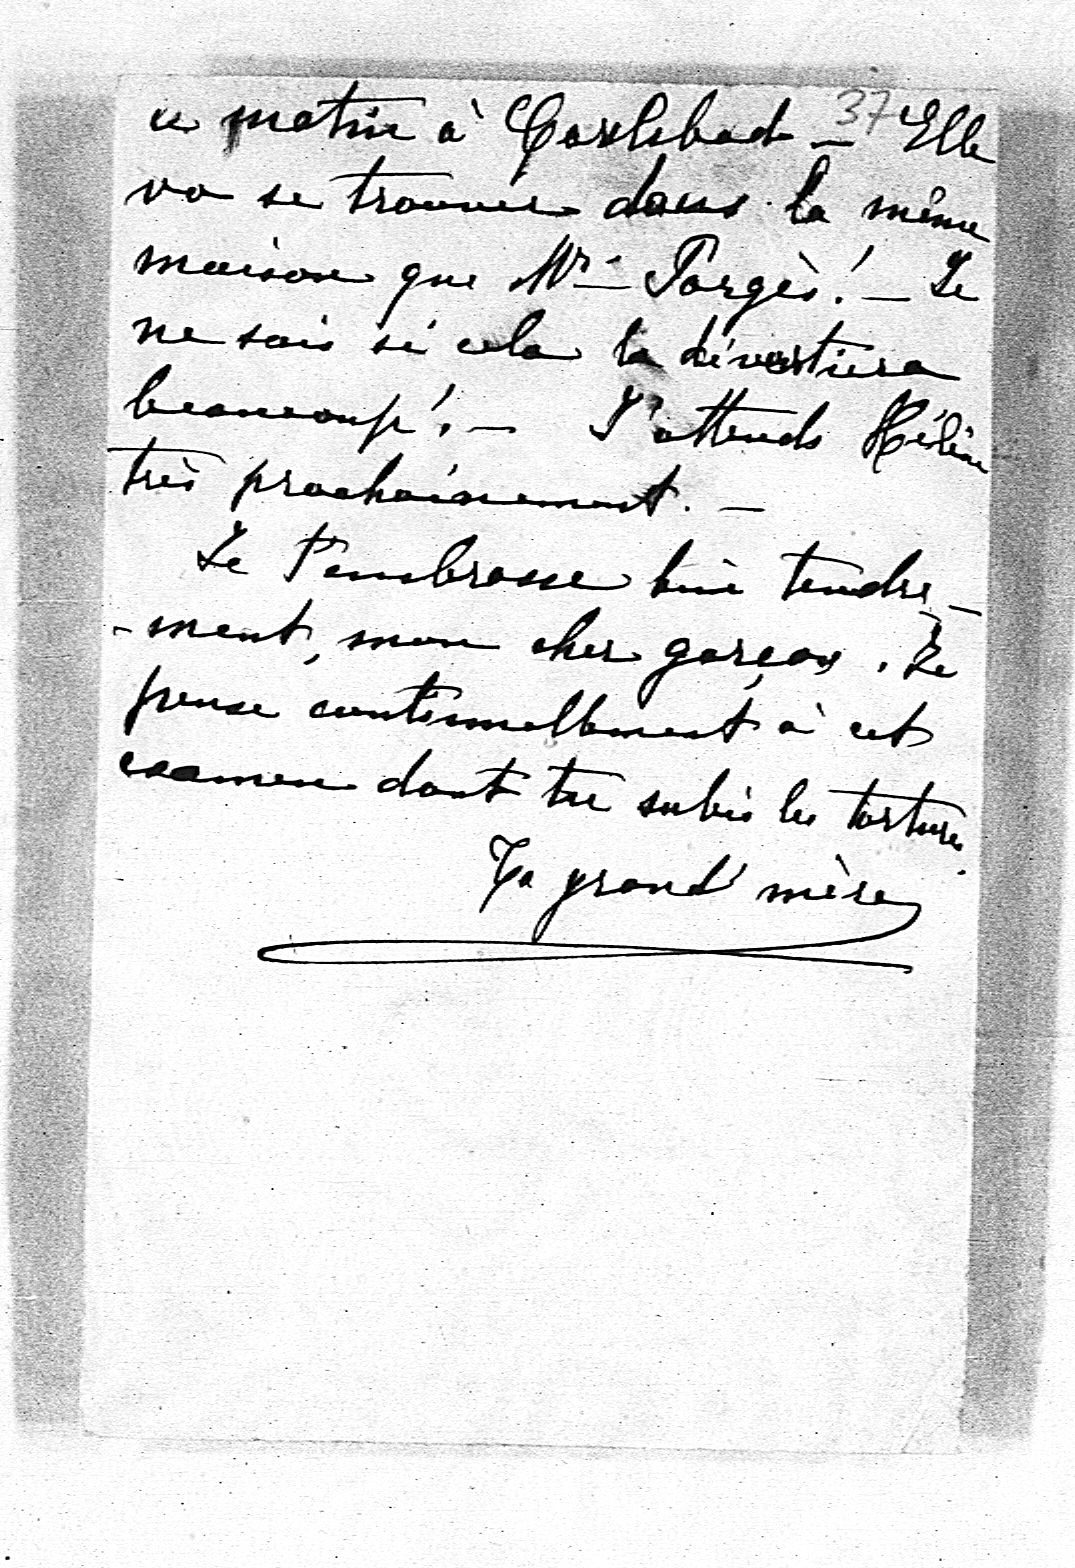 ce matin à Carlsbad — 37 Elle
va se trouver dans la même
maison que Mr Porgès ! — Je
ne sais si cela la divertira
beaucoup ! — J'attends Hélène
très prochainement. —
Je t'embrasse bien tendre-
-ment, mon cher garçon. Je
pense continuellement à cet
examen dont tu subis les tortures.
Ta grand'mère